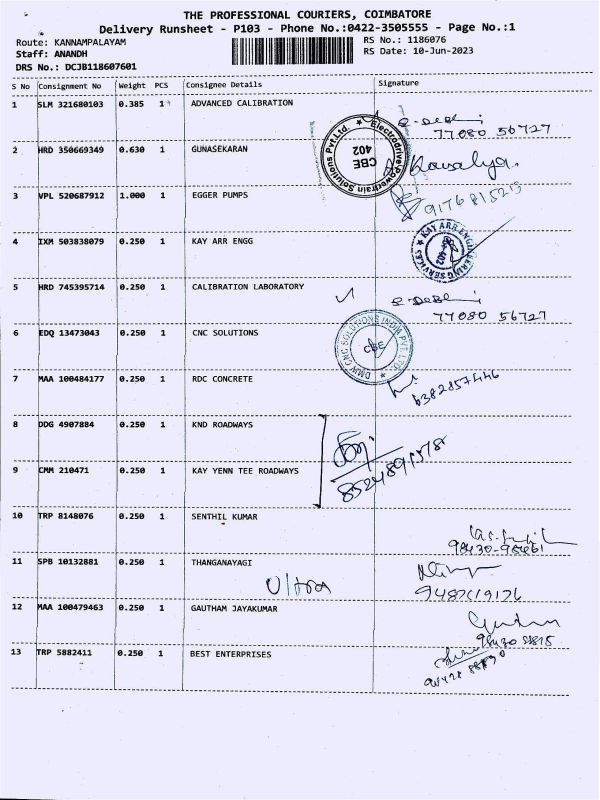 THE PROFESSIONAL COURIERS, COIMBATORE
Delivery Runsheet - P103 - Phone No.:0422-3505555 - Page No.:1
Route: KANNAMPALAYAM RS No.: 1186076
Staff: ANANDH RS Date: 10-Jun-2023
DRS No.: DCJB118607601
S No Consignment No Weight PCS Consignee Details Signature
1 SLM 321680103 0.385 1 ADVANCED CALIBRATION
77080 56727
Electrodrive Powertrain Solutions Pvt.Ltd. ★
CBE
402
2 HRD 350669349 0.630 1 GUNASEKARAN Kavalya.
3 VPL 520687912 1.000 1 EGGER PUMPS
4 IXM 503838079 0.250 1 KAY ARR ENGG
★ KAY ARR ENGINEERING SERVICES
5 HRD 745395714 0.250 1 CALIBRATION LABORATORY
77080 56727
6 EDQ 13473043 0.250 1 CNC SOLUTIONS
DMK CNC SOLUTIONS INDIA PVT.LTD. ★
CBE
7 MAA 100484177 0.250 1 RDC CONCRETE
6382857446
8 DDG 4907884 0.250 1 KND ROADWAYS
9 CMM 210471 0.250 1 KAY YENN TEE ROADWAYS
10 TRP 8148076 0.250 1 SENTHIL KUMAR
11 SPB 10132881 0.250 1 THANGANAYAGI
Ultra
12 MAA 100479463 0.250 1 GAUTHAM JAYAKUMAR
13 TRP 5882411 0.250 1 BEST ENTERPRISES